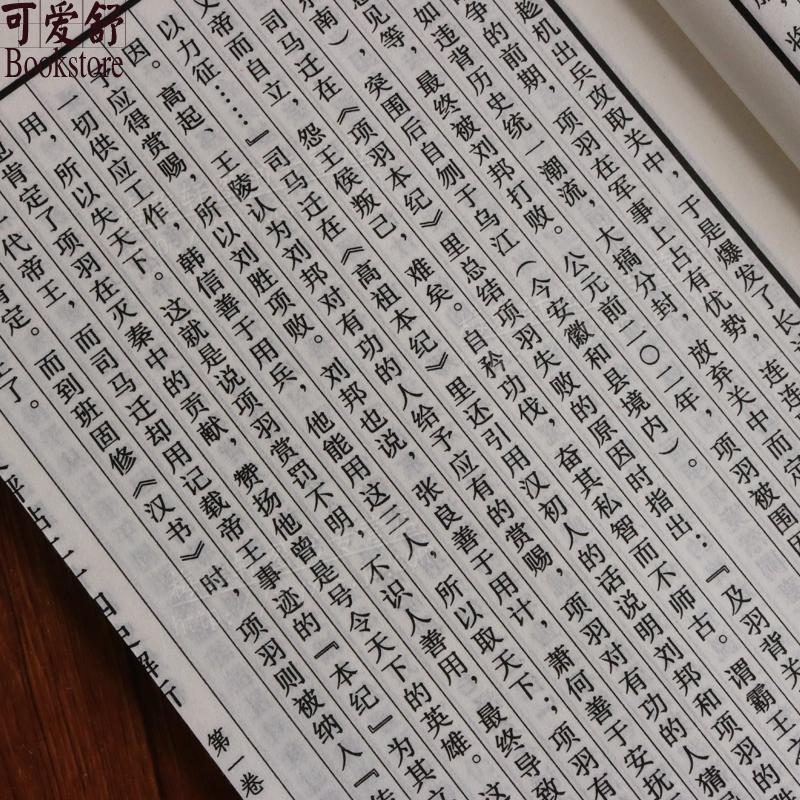 可爱舒
Bookstore
趁机出兵攻取关中，于是爆发了长
争的前期，项羽在军事上占有优势，连连
如违背历史统一潮流，大搞分封，放弃关中而定
意见等，最终被刘邦打败。公元前二〇二年，项羽被围困
突围后自刎于乌江（今安徽和县境内）。
司马迁在《项羽本纪》里总结项羽失败的原因时指出：『及羽背关
帝而自立，怨王侯叛己，难矣。自矜功伐，奋其私智而不师古。谓霸王之
以力征……』司马迁在《高祖本纪》里还引用汉初人的话说明刘邦和项羽的胜
因。高起、王陵认为刘邦对有功的人给予应有的赏赐，项羽对有功的人猜
应得赏赐，所以刘胜项败。刘邦也说，张良善于用计，萧何善于安抚
一切供应工作，韩信善于用兵，他能用这三人，所以取天下；项羽有
用，所以失天下。这就是说项羽赏罚不明，不识人善用，最终导致
也肯定了项羽在灭秦中的贡献，赞扬他曾是号令天下的英雄。这
一代帝王，而司马迁却用记载帝王事迹的『本纪』为其立
肯定。而到班固修《汉书》时，项羽则被纳入『传
了。
第一卷